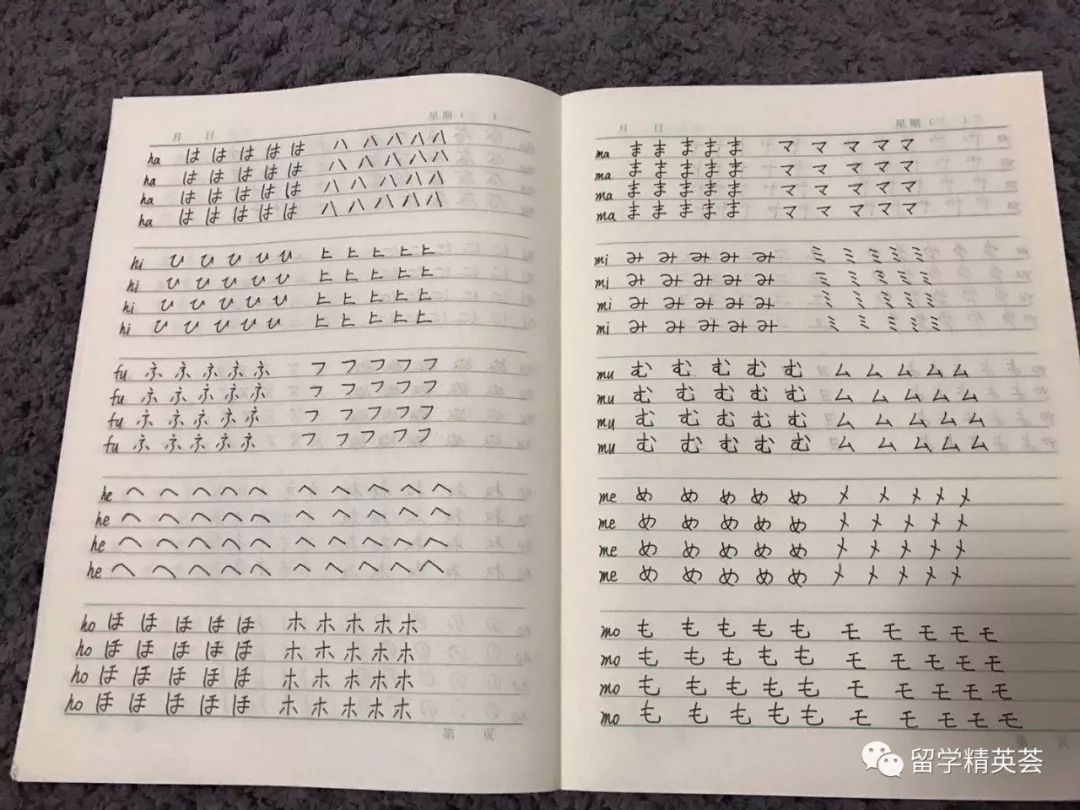 月 日 星期( )
ha はははははハハハハハ
ha はははははハハハハハ
ha はははははハハハハハ
ha はははははハハハハハ
hi ひひひひひヒヒヒヒヒ
hi ひひひひひヒヒヒヒヒ
hi ひひひひひヒヒヒヒヒ
hi ひひひひひヒヒヒヒヒ
fu ふふふふふフフフフフ
fu ふふふふふフフフフフ
fu ふふふふふフフフフフ
fu ふふふふふフフフフフ
he へへへへへヘヘヘヘヘ
he へへへへへヘヘヘヘヘ
he へへへへへヘヘヘヘヘ
he へへへへへヘヘヘヘヘ
ho ほほほほほホホホホホ
ho ほほほほほホホホホホ
ho ほほほほほホホホホホ
ho ほほほほほホホホホホ
第 页
月 日 星期( )
ma まままままママママママ
ma まままままママママママ
ma まままままママママママ
ma まままままママママママ
mi みみみみみミミミミミ
mi みみみみみミミミミミ
mi みみみみみミミミミミ
mi みみみみみミミミミミ
mu むむむむむムムムムム
mu むむむむむムムムムム
mu むむむむむムムムムム
mu むむむむむムムムムム
me めめめめめメメメメメ
me めめめめめメメメメメ
me めめめめめメメメメメ
me めめめめめメメメメメ
mo もももももモモモモモ
mo もももももモモモモモ
mo もももももモモモモモ
mo もももももモモモモモ
留学精英荟